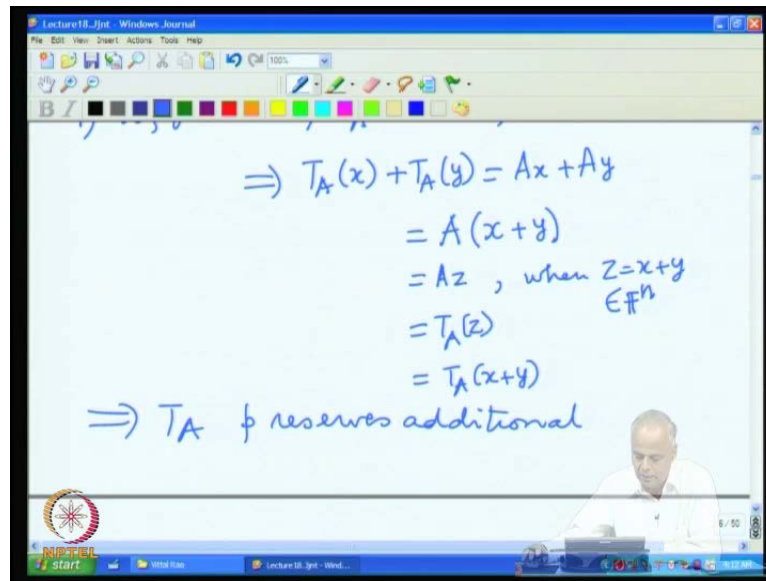 Lecture18_Jjnt - Windows Journal
File Edit View Insert Actions Tools Help
100%
B I
⟹ T_A(x) + T_A(y) = Ax + Ay
= A(x+y)
= Az , when z = x+y
∈ 𝔽ⁿ
= T_A(z)
= T_A(x+y)
⟹ T_A preserves additional
6 / 50
NPTEL
start Vittal Rao Lecture18_Jjnt - Wind... 9:12 AM